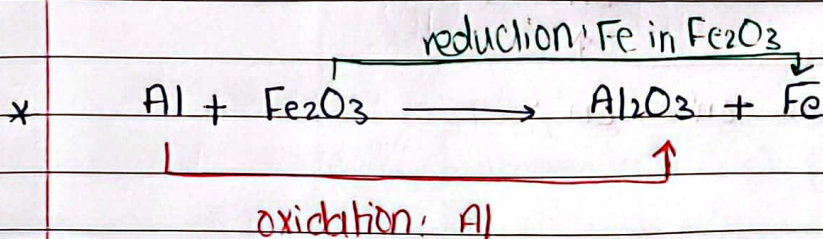 reduction: Fe in Fe2O3
* Al + Fe2O3 → Al2O3 + Fe
oxidation: Al